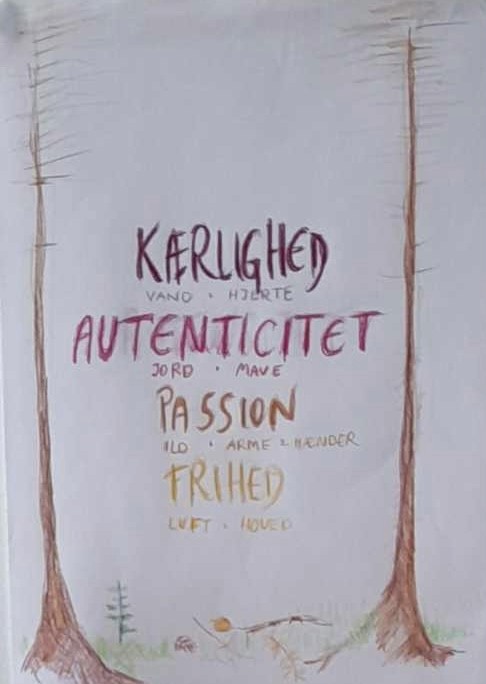 KÆRLIGHED
VAND · HJERTE
AUTENTICITET
JORD · MAVE
PASSION
ILD · ARME & HÆNDER
FRIHED
LUFT · HOVED